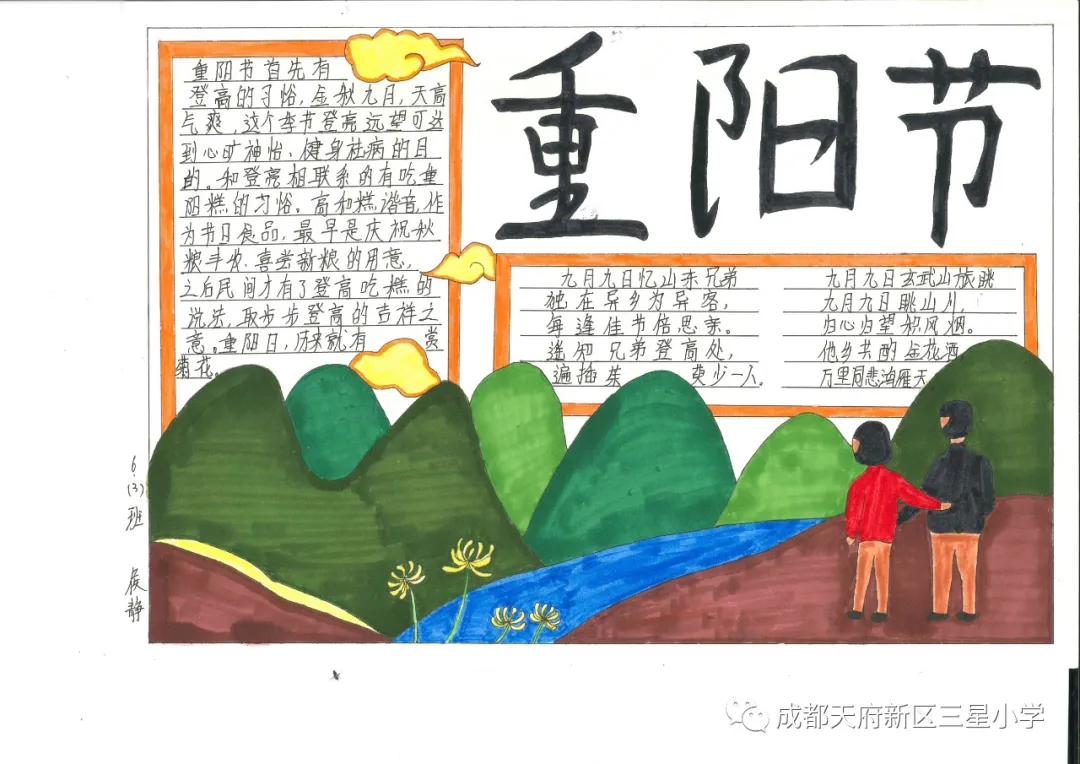 重阳节
重阳节首先有
登高的习俗,金秋九月,天高
气爽,这个季节登高远望可达
到心旷神怡、健身祛病的目
的。和登高相联系的有吃重
阳糕的习俗。高和糕谐音,作
为节日食品,最早是庆祝秋
粮丰收、喜尝新粮的用意,
之后民间才有了登高吃糕的
说法,取步步登高的吉祥之
意。重阳日,历来就有 赏
菊花。
九月九日忆山东兄弟
独在异乡为异客,
每逢佳节倍思亲。
遥知兄弟登高处,
遍插茱 莫少一人。
九月九日玄武山旅眺
九月九日眺山川,
归心归望积风烟。
他乡共酌金花酒
万里同悲鸿雁天
6.(3)班 侯静
成都天府新区三星小学